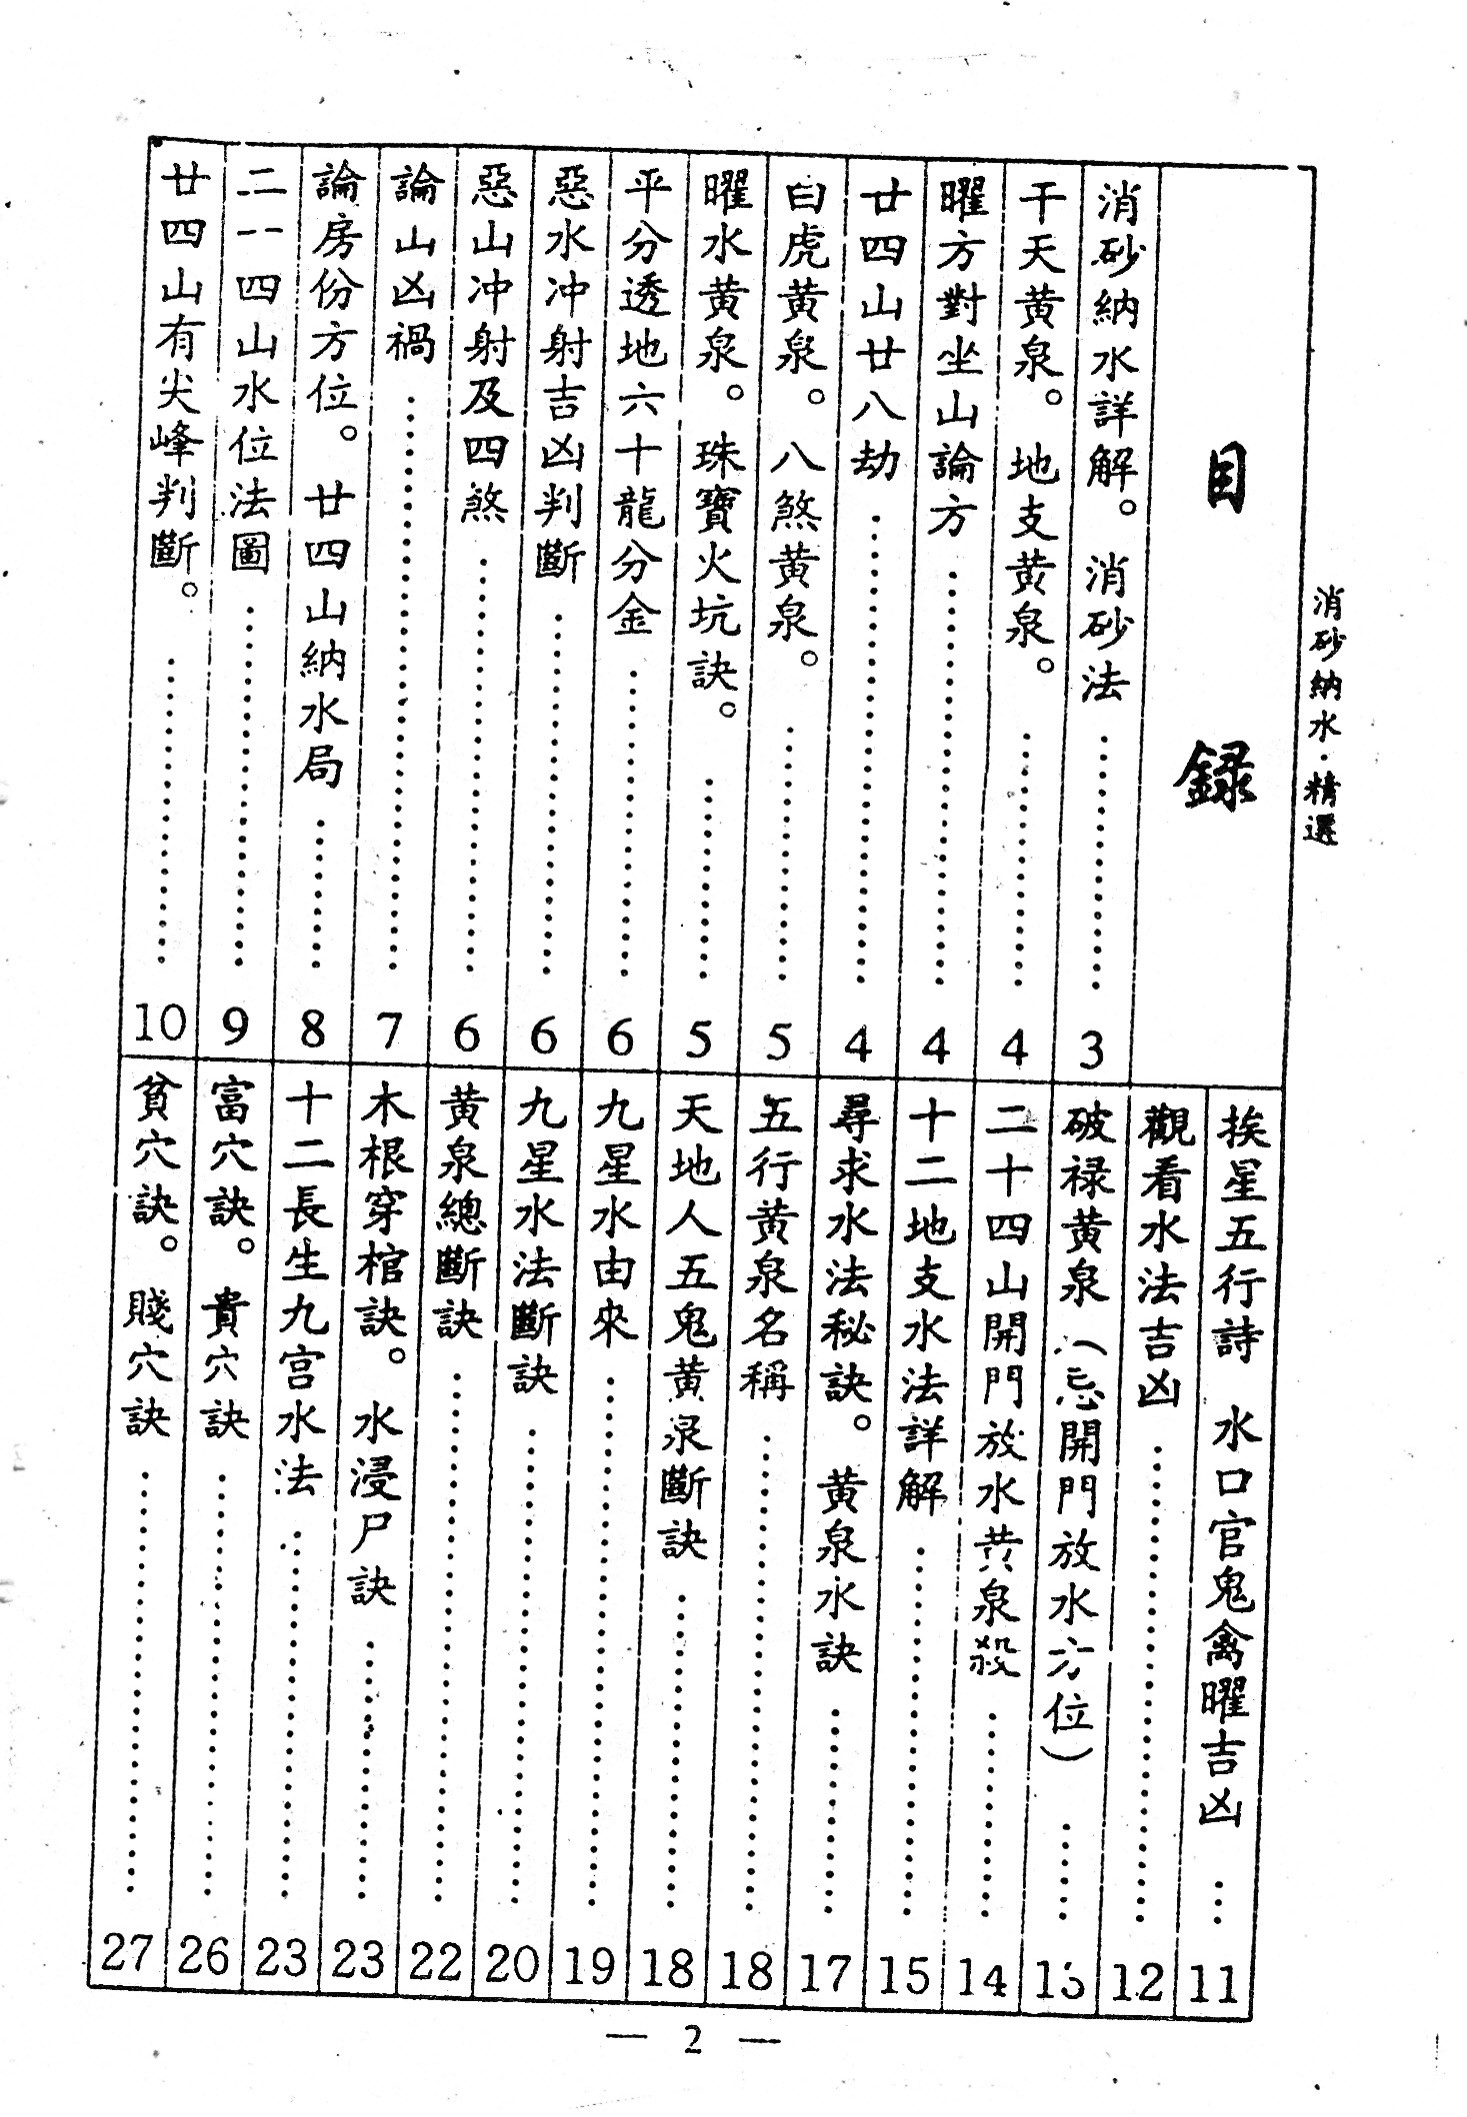 消砂納水·精選
目錄
消砂納水詳解。消砂法……3
干天黄泉。地支黄泉。……4
曜方對坐山論方……4
廿四山廿八劫……4
白虎黄泉。八煞黄泉。……5
曜水黄泉。珠寶火坑訣。……5
平分透地六十龍分金……6
惡水冲射吉凶判斷……6
惡山冲射及四煞……6
論山凶禍……7
論房份方位。廿四山納水局……8
二一四山水位法圖……9
廿四山有尖峰判斷。……10
挨星五行詩 水口官鬼禽曜吉凶…11
觀看水法吉凶……12
破禄黄泉(忌開門放水方位)……13
二十四山開門放水黄泉殺……14
十二地支水法詳解……15
尋求水法秘訣。黄泉水訣……17
五行黄泉名稱……18
天地人五鬼黄泉斷訣……18
九星水由來……19
九星水法斷訣……20
黄泉總斷訣……22
木根穿棺訣。水浸尸訣……23
十二長生九宫水法……23
富穴訣。貴穴訣……26
貧穴訣。賤穴訣……27
— 2 —